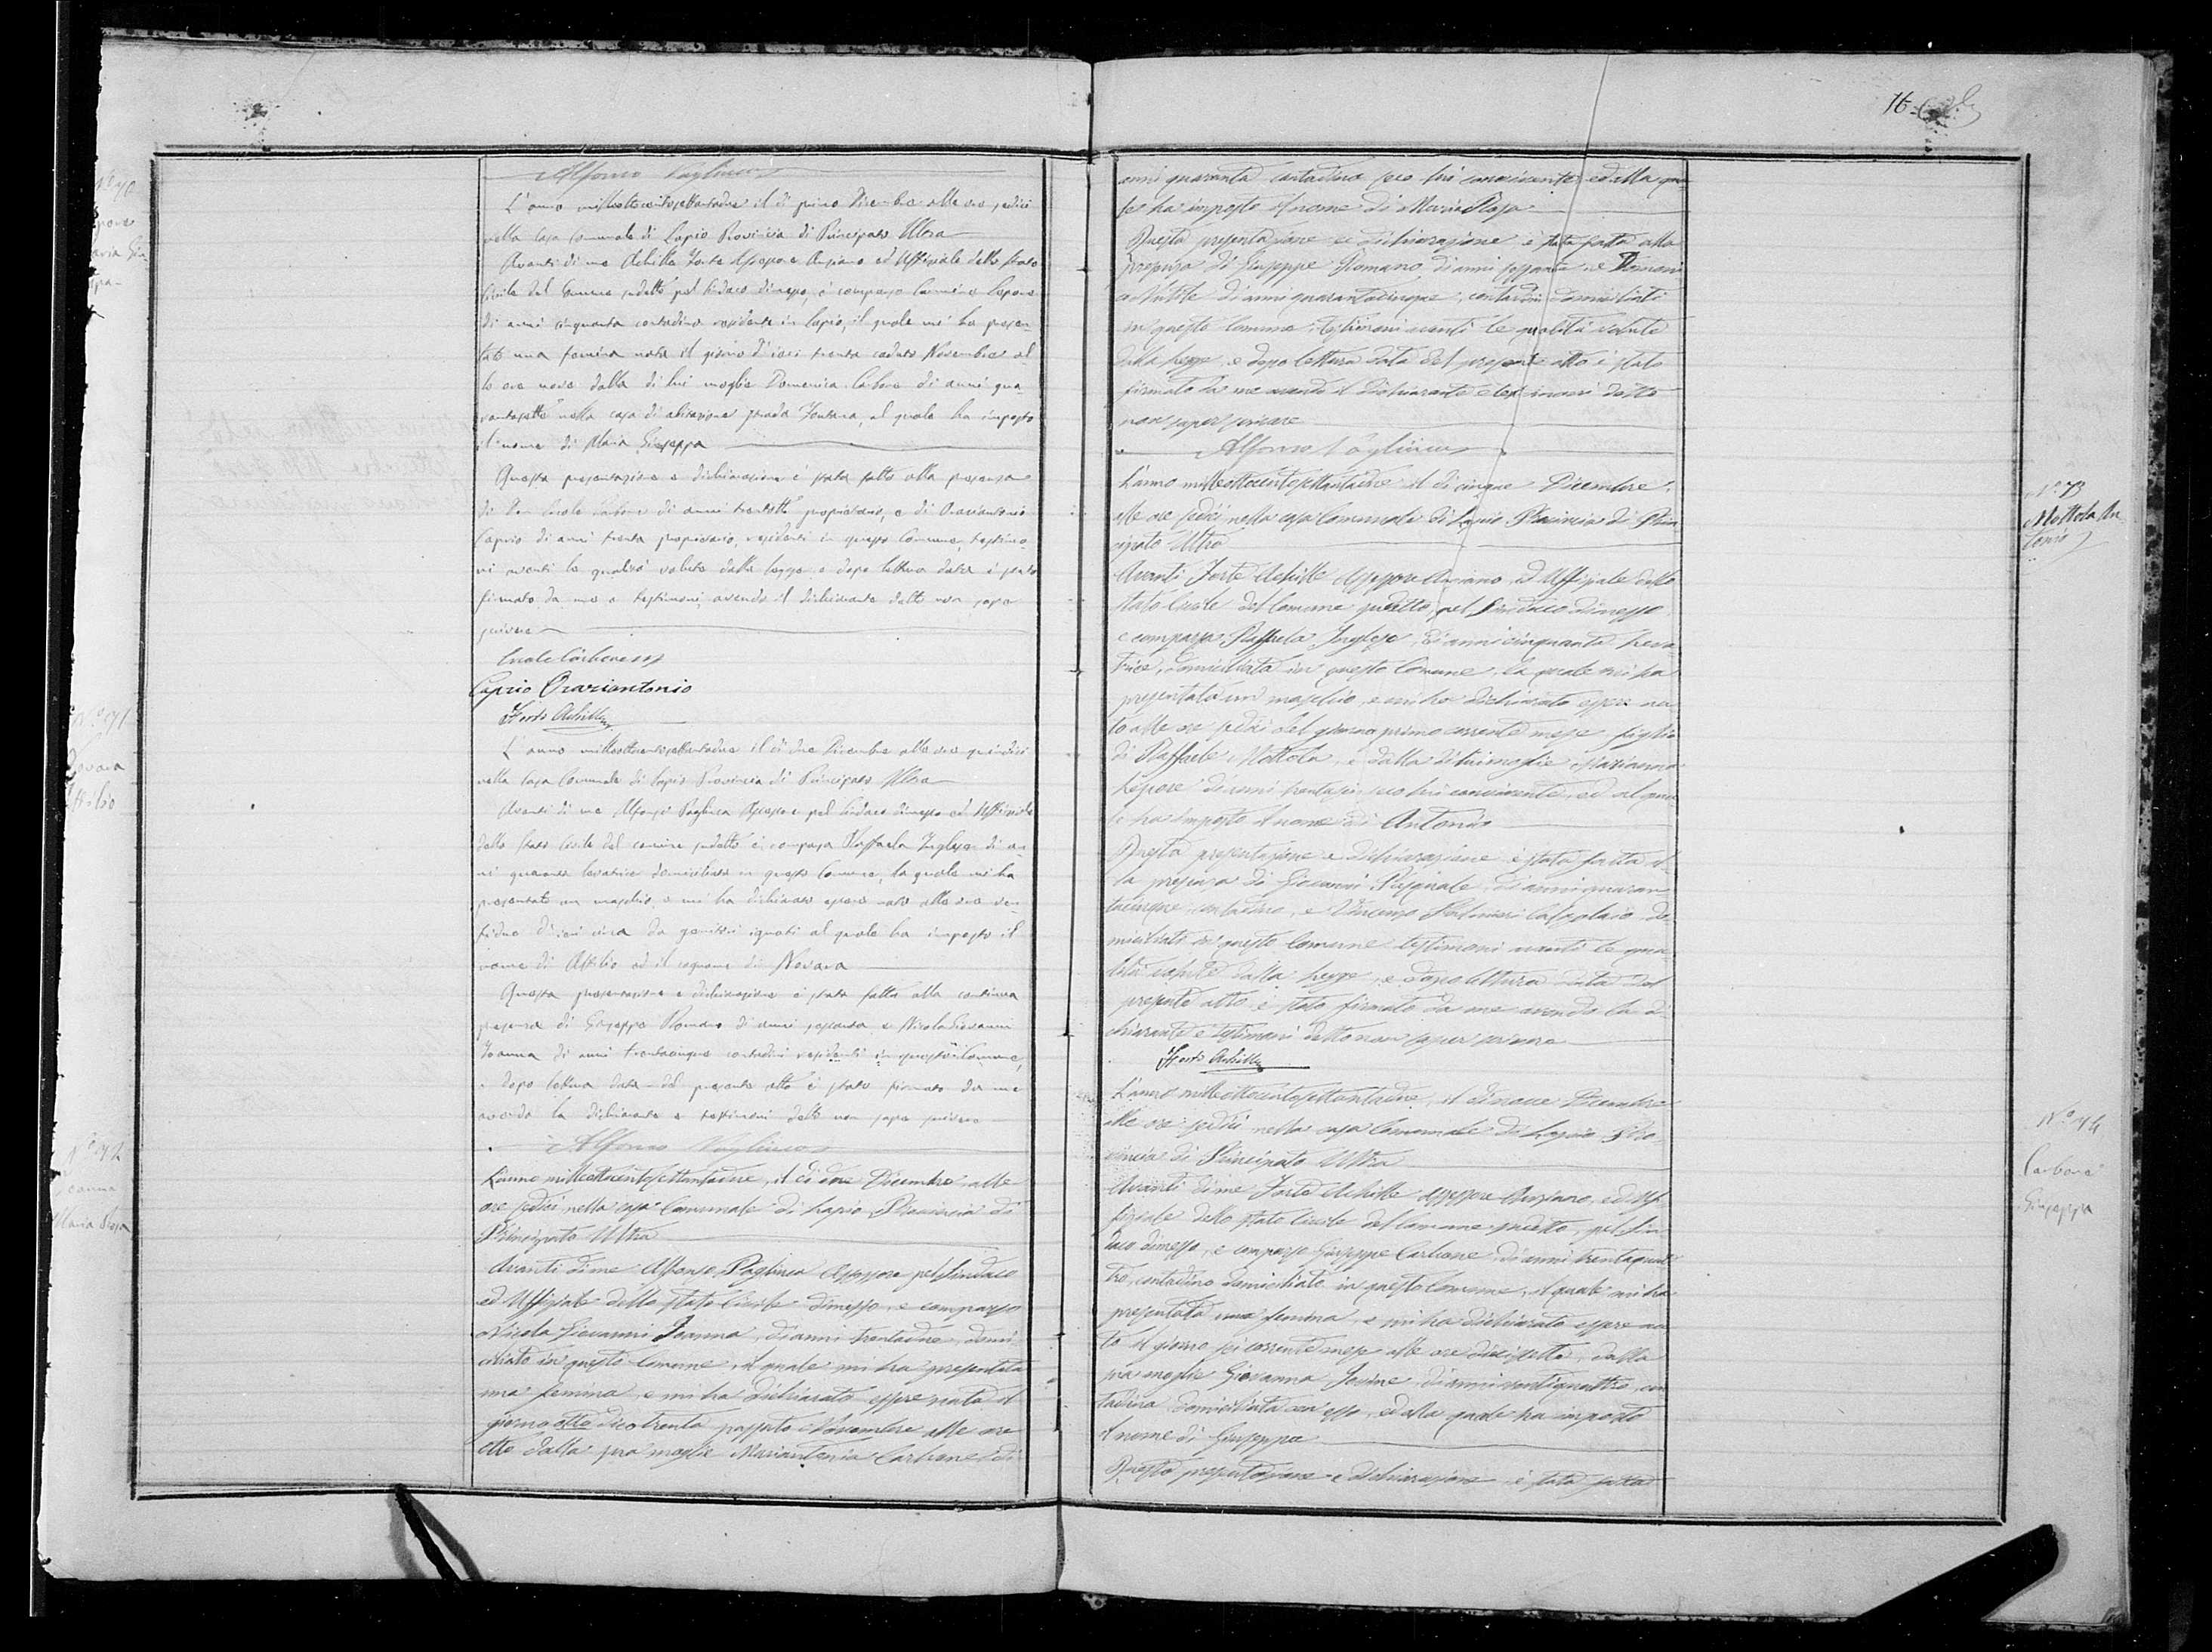 Alfonso Pagliuca
L'anno milleottocentosettantadue il dì primo Dicembre alle ore sedici
nella Casa Comunale di Lapio Provincia di Principato Ultra
Avanti di me Achille Forte Assessore Anziano ed Uffiziale dello Stato
Civile del Comune sudetto pel Sindaco dimesso, è comparso Carmine Lepore
di anni cinquanta contadino residente in Lapio, il quale mi ha presen-
tato una femina nata il giorno d'ieri trenta caduto Novembre al
le ore nove dalla di lui moglie Domenica Carbone di anni qua
rantasette nella casa di abitazione strada Fontana, al quale ha imposto
il nome di Maria Giuseppa
Questa presentazione e dichiarazione è stata fatta alla presenza
di Don Carbone di anni trentotto proprietario, e di Oraziantonio
Caprio di anni trenta proprietario, residenti in questo Comune, testimo-
ni aventi le qualità volute dalla legge e dopo lettura data è stato
firmato da me e testimoni, avendo il dichiarante detto non saper
scrivere
Carbone
Caprio Oraziantonio
Forte Achille
L'anno milleottocentosettantadue il dì due Dicembre alle ore quindici
nella Casa Comunale di Lapio Provincia di Principato Ultra
Avanti di me Alfonso Pagliuca Assessore pel Sindaco dimesso ed Uffiziale
dello Stato Civile del comune sudetto è comparsa Raffaela Inglese di an
ni quaranta levatrice domiciliata in questo Comune, la quale mi ha
presentato un maschio, e mi ha dichiarato essere nato alle ore ven-
tidue di ieri da genitori ignoti al quale ha imposto il
nome di Attilio ed il cognome di Novara
Questa presentazione e dichiarazione è stata fatta alla continua
presenza di Giuseppe Romano di anni sessanta e Nicola Giovanni
Ioanna di anni trentacinque contadini residenti in questo Comune,
e dopo lettura data del presente atto è stato firmato da me
avendo la dichiarante e testimoni detto non saper scrivere
Alfonso Pagliuca
L'anno milleottocentosettantadue, il dì due Dicembre alle
ore sedici nella casa Comunale di Lapio Provincia di
Principato Ultra
Avanti di me Alfonso Pagliuca Assessore pel Sindaco
ed Uffiziale dello stato Civile dimesso, è comparso
Nicola Giovanni Ioanna, di anni trentadue, domi
ciliato in questo Comune, il quale mi ha presentata
una femina, e mi ha dichiarato essere nata il
giorno otto dico trenta passato Novembre alle ore
otto dalla sua moglie Mariantonia Carbone di
N° 70
Lepore
Maria Giu-
seppa
N° 71
Novara
Attilio
N° 72
Ioanna
Maria Rosa
16
anni quaranta contadina seco lui convivente ed alla qua
le ha imposto il nome di Maria Rosa
Questa presentazione e dichiarazione è stata fatta alla
presenza di Giuseppe Romano, di anni sessanta e
di anni quarantacinque, contadini domiciliati
in questo Comune, testimoni aventi le qualità volute
dalla legge, e dopo lettura data del presente atto è stato
firmato da me avendo il dichiarante e testimoni detto
non saper scrivere
Alfonso Pagliuca
L'anno milleottocentosettantadue il dì cinque Dicembre,
alle ore sedici nella casa Comunale di Lapio Provincia di Prin
cipato Ultra
Avanti Forte Achille Assessore Anziano, ed Uffiziale dello
stato Civile del Comune sudetto, pel Sindaco dimesso
è comparsa Raffaela Inglese, di anni cinquanta leva-
trice, domiciliata in questo Comune, la quale mi ha
presentato un maschio, e mi ha dichiarato essere na
to alle ore sedici del giorno primo corrente mese figlio
di Raffaele Mottola, e dalla di lui moglie Marianna
Lepore di anni trentasei seco lui convivente, ed al qua
le ha imposto il nome di Antonio
Questa presentazione e dichiarazione è stata fatta al
la presenza di Giovanni Pasquale, di anni quaran
tacinque, contadino, e Vincenzo calzolaio, do
miciliati in questo Comune testimoni aventi le qua
lità volute dalla legge, e dopo lettura data del
presente atto è stato firmato da me avendo la di
chiarante e testimoni detto non saper scrivere
Forte Achille
L'anno milleottocentosettantadue, il dì nove Dicembre
alle ore sedici nella casa Comunale di Lapio Pro-
vincia di Principato Ultra
Avanti di me Forte Achille Assessore Anziano, ed Uf
fiziale dello stato Civile del Comune sudetto, pel Sin
daco dimesso, è comparso Giuseppe Carbone, di anni trentaquat
tro, contadino domiciliato in questo Comune, il quale mi ha
presentata una femina, e mi ha dichiarato essere na
ta il giorno sei corrente mese alle ore diecisette, dalla
sua moglie Giovanna Iovine, di anni ventiquattro, con
tadina, domiciliata con esso, ed alla quale ha imposto
il nome di Giuseppa
Questa presentazione e dichiarazione è stata fatta
N° 73
Mottola An
tonio
N° 74
Carbone
Giuseppa